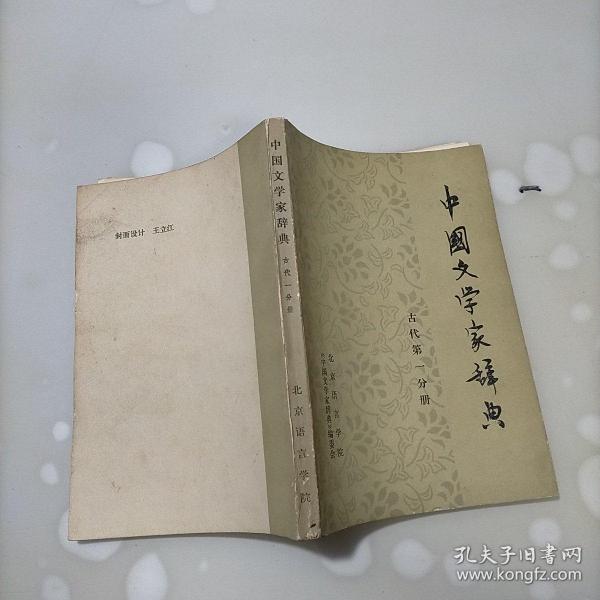 中國文学家辞典
古代第一分册
北京语言学院
《中国文学家辞典》编委会
中国文学家辞典
古代一分册
北京语言学院
封面设计 王立江
孔夫子旧书网
www.kongfz.com